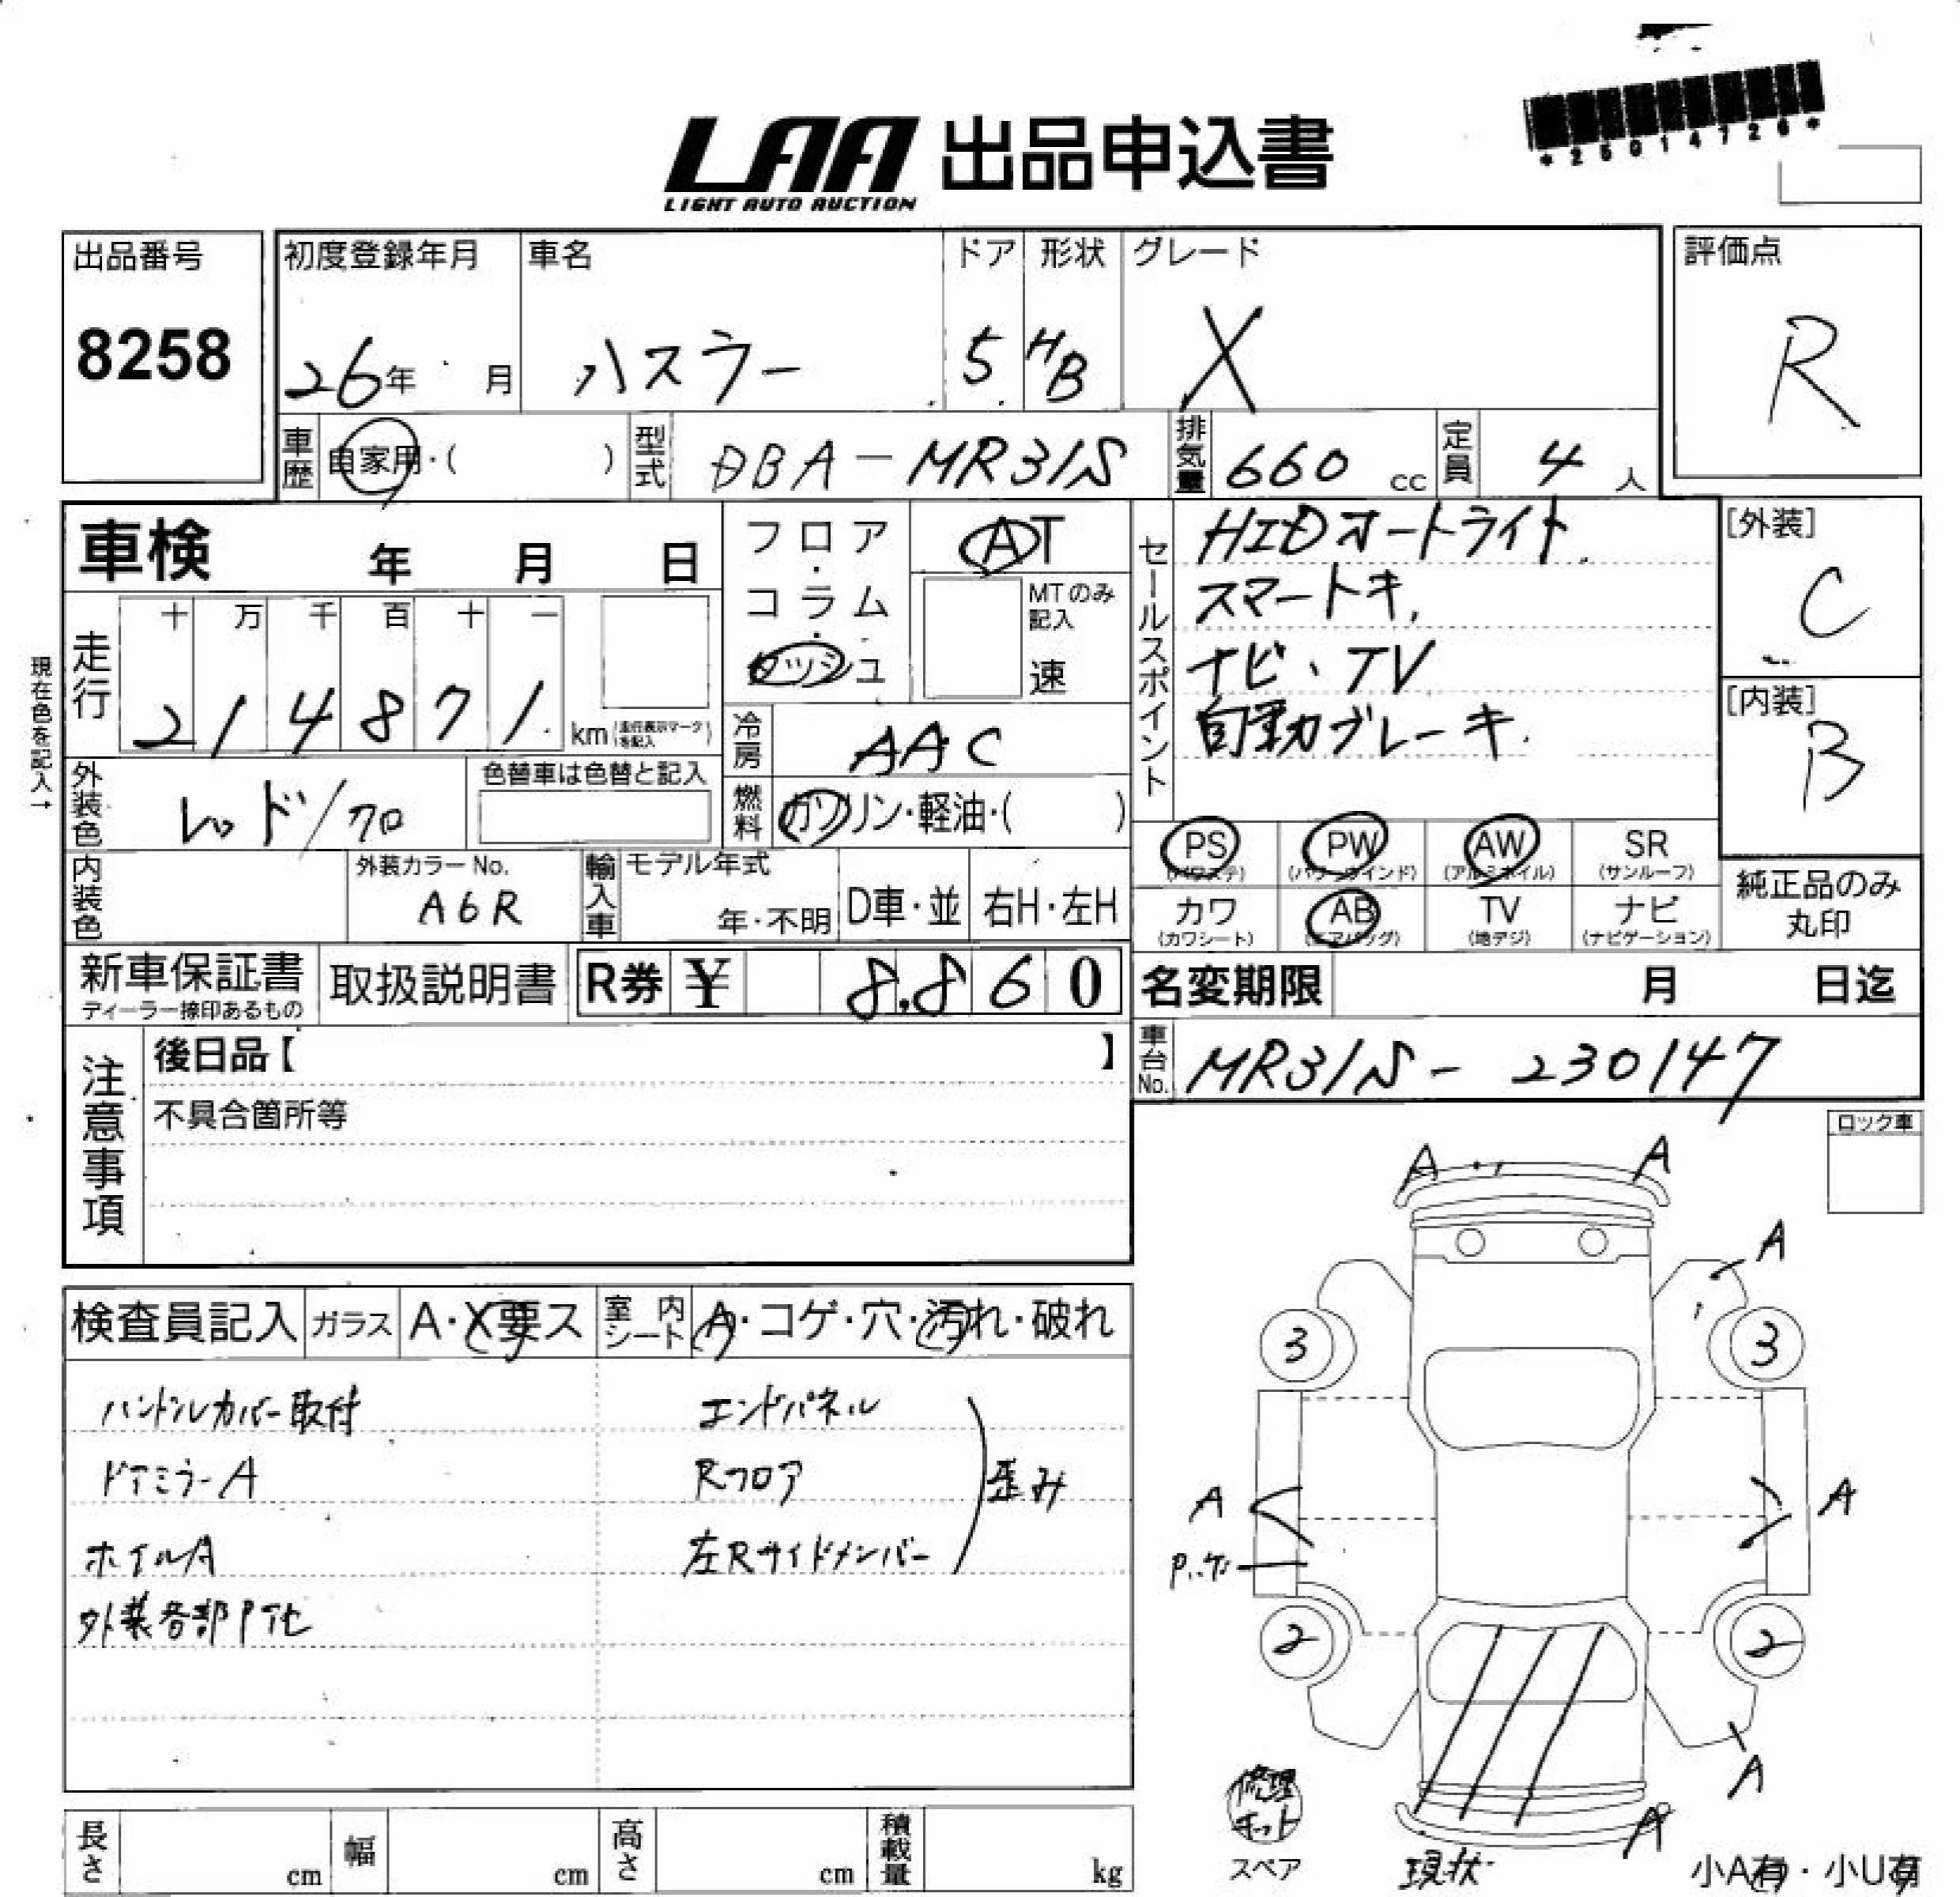 *25014726*
LAA 出品申込書
LIGHT AUTO AUCTION
出品番号
8258
初度登録年月
26年 月
車名
ハスラー
ドア
5
形状
HB
グレード
X
評価点
R
車歴
自家用・( )
型式
DBA-MR31S
排気量
660 cc
定員
4 人
車検 年 月 日
フロア・コラム・ダッシュ
AT
MTのみ記入
速
セールスポイント
HIDオートライト
スマートキ,
ナビ、TV
自動ブレーキ
[外装]
C
[内装]
B
現在色を記入→
走行
十 万 千 百 十 一
2 1 4 8 7 1
km(走行表示マークを記入)
冷房
AAC
外装色
レッド/クロ
色替車は色替と記入
燃料
ガソリン・軽油・( )
内装色
外装カラーNo.
A6R
輸入車
モデル年式
年・不明
D車・並
右H・左H
PS
(パワステ)
PW
(パワーウインド)
AW
(アルミホイル)
SR
(サンルーフ)
カワ
(カワシート)
AB
(エアバッグ)
TV
(地デジ)
ナビ
(ナビゲーション)
純正品のみ
丸印
新車保証書
ディーラー捺印あるもの
取扱説明書
R券 ¥ 8,860
名変期限 月 日迄
注意事項
後日品【 】
不具合箇所等
車台No.
MR31S-230147
ロック車
検査員記入
ガラス
A・X要ス
室内シート
A・コゲ・穴・汚れ・破れ
ハンドルカバー取付
ドアミラーA
ホイルA
外装各部P他
エンドパネル
Rフロア
左Rサイドメンバー
歪み
A A
A
3 3
A A
2 2
A
A
修理キット
スペア
現状
小A有・小U有
長さ cm
幅 cm
高さ cm
積載量 kg